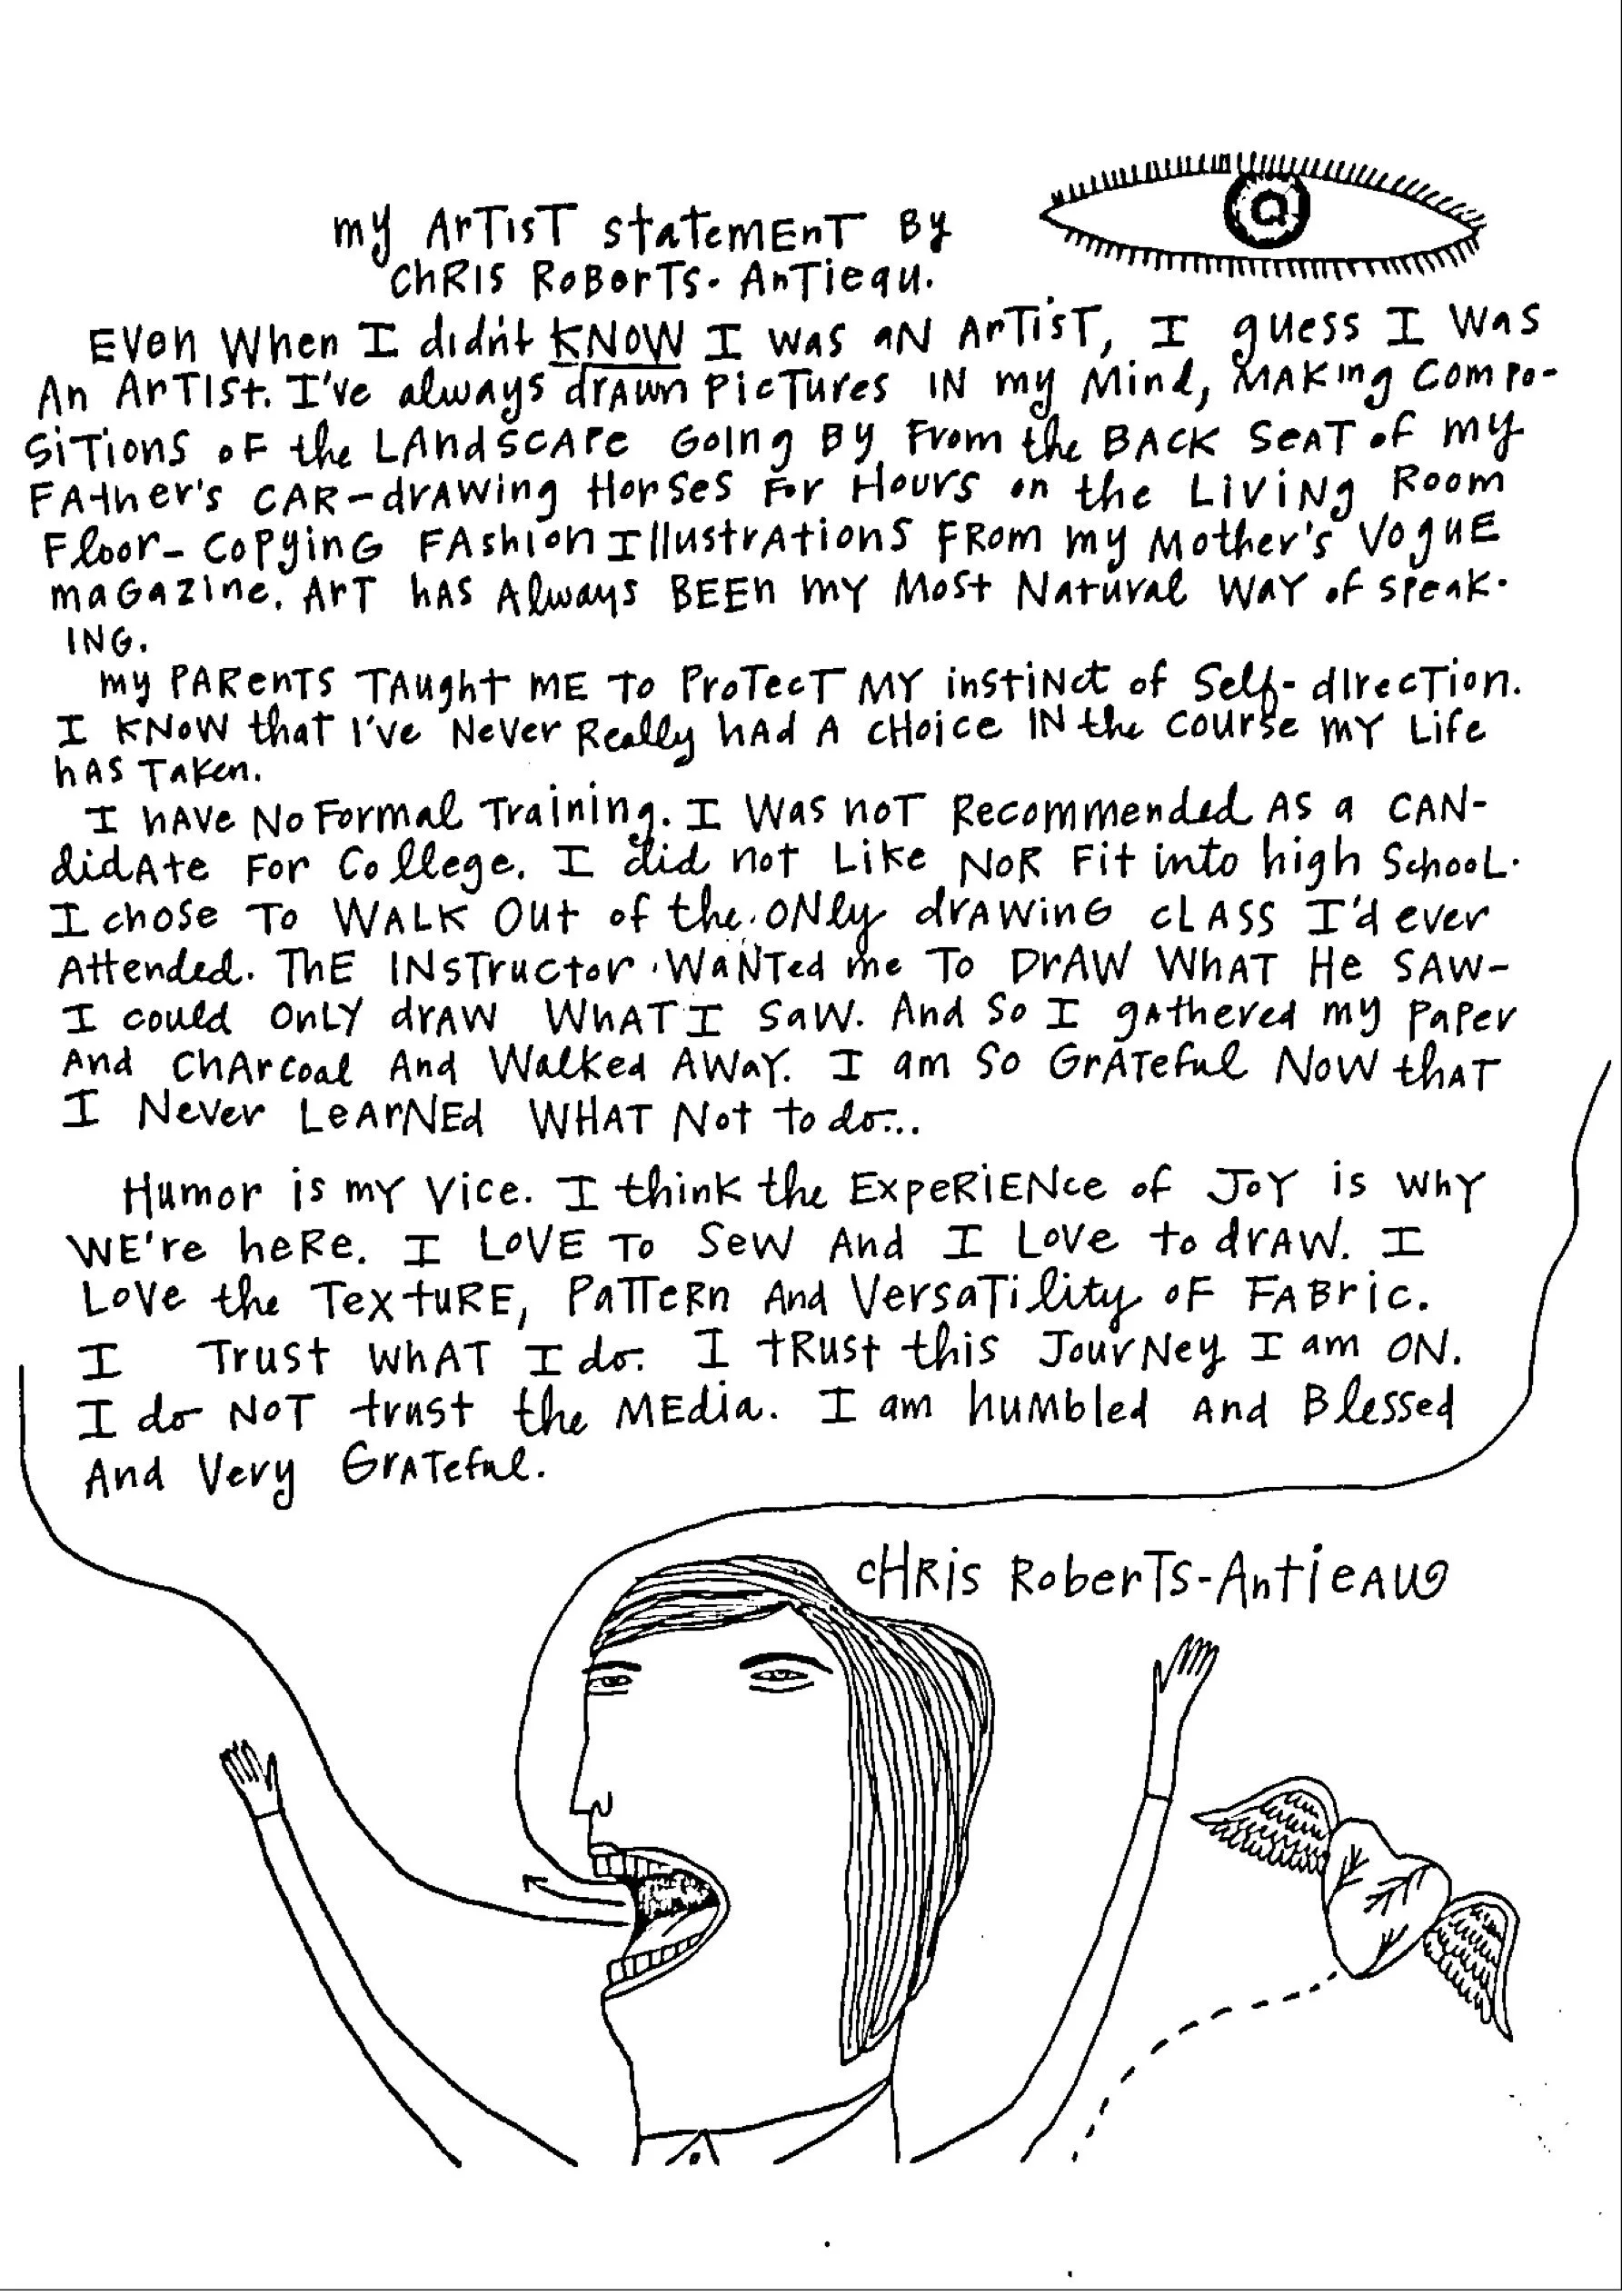 my ArTisT StatemEnT By
ChRIS RoBerTs-AnTieau.
EVen When I didn't KNOW I was aN ArTisT, I guess I Was
An ArTIst. I've always drAwn PicTures IN my Mind, MAKing Compo-
SiTions oF the LAndscApe Going By From the BACK SeAT of my
FAther's CAR-drAwing Horses For Hours on the LiViNg Room
Floor- CoPyinG FAshion Illustrations FRom my Mother's VoguE
maGazine. ArT hAS Always BEEn mY Most Natural WAY of SpeaK-
ING.
my PARenTS TAught mE To ProTecT MY instiNct of Self-dIrecTion.
I KNoW that I've NeVer Really hAd A cHoice IN the course mY Life
hAS TaKen.
I hAVe No Formal Training. I Was noT Recommended AS a CAN-
didAte For College. I did not Like NoR Fit into high SchooL.
I chose To WALK Out of the ONly drAwinG cLASS I'd ever
Attended. ThE INsTructor WaNTed me To DrAW WhAT He SAW-
I could OnLY drAW WhAT I SaW. And So I gAthered my PaPer
And ChArcoal And Walked AWaY. I am So GrATeful NoW thAT
I NeVer LeArNEd WHAT Not to do...
Humor is mY Vice. I think the ExpeRiENce of JoY is WhY
WE're heRe. I LoVE To SeW And I LoVe to drAW. I
LoVe the TexTuRE, PaTTeRn And VersaTility oF FABric.
I Trust WhAT I do. I tRust this JourNey I am ON.
I do NoT trust the MEdia. I am huMbled and Blessed
And Very GrATeful.
cHRis RoberTs-AntieAu